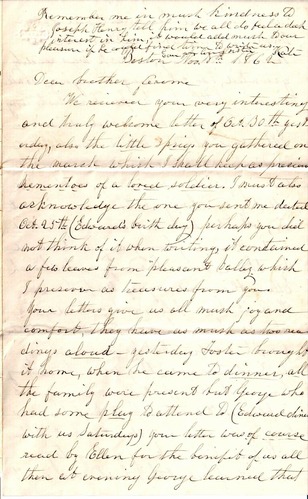 Remember me in much kindness to
Joseph Henry tell him we all do feel a deep
interest in him, it would add much to our
pleasure if he could find time to write us
Kate
Boston Nov 8th 1862
Dear brother
We receive your very interesting
and truly welcome letter of Oct. 30th yest
erday, also the little sprigs you gathered on
the march which I shall keep as precious
mementoes of a loved soldier. I must also
acknowledge the one you sent me dated
Oct. 25th (Edward's birth day) perhaps you did
not think of it when writing, it contained
a few leaves from "pleasant valley" which
I preserve as treasures from you.
Your letters give us all much joy and
comfort, they have as much as two rea
dings aloud - yesterday Foster brought
it home, when he came to dinner, all
the family were present but George who
had some play to attend to (Edward dines
with us Saturdays) your letter was of course
read by Ellen for the benefit of us all
then at evening George learned that